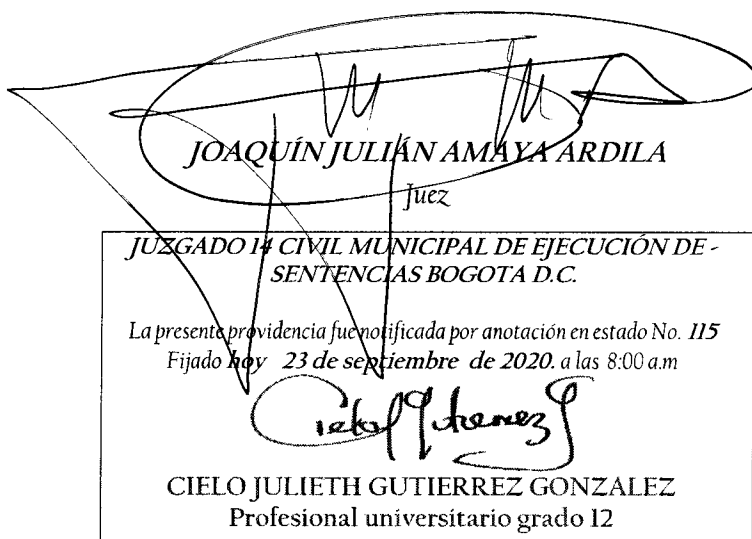 JOAQUÍN JULIÁN AMAYA ARDILA
Juez
JUZGADO 14 CIVIL MUNICIPAL DE EJECUCIÓN DE -
SENTENCIAS BOGOTA D.C.
La presente providencia fue notificada por anotación en estado No. 115
Fijado hoy 23 de septiembre de 2020. a las 8:00 a.m
Cielo J Gutierrez G
CIELO JULIETH GUTIERREZ GONZALEZ
Profesional universitario grado 12